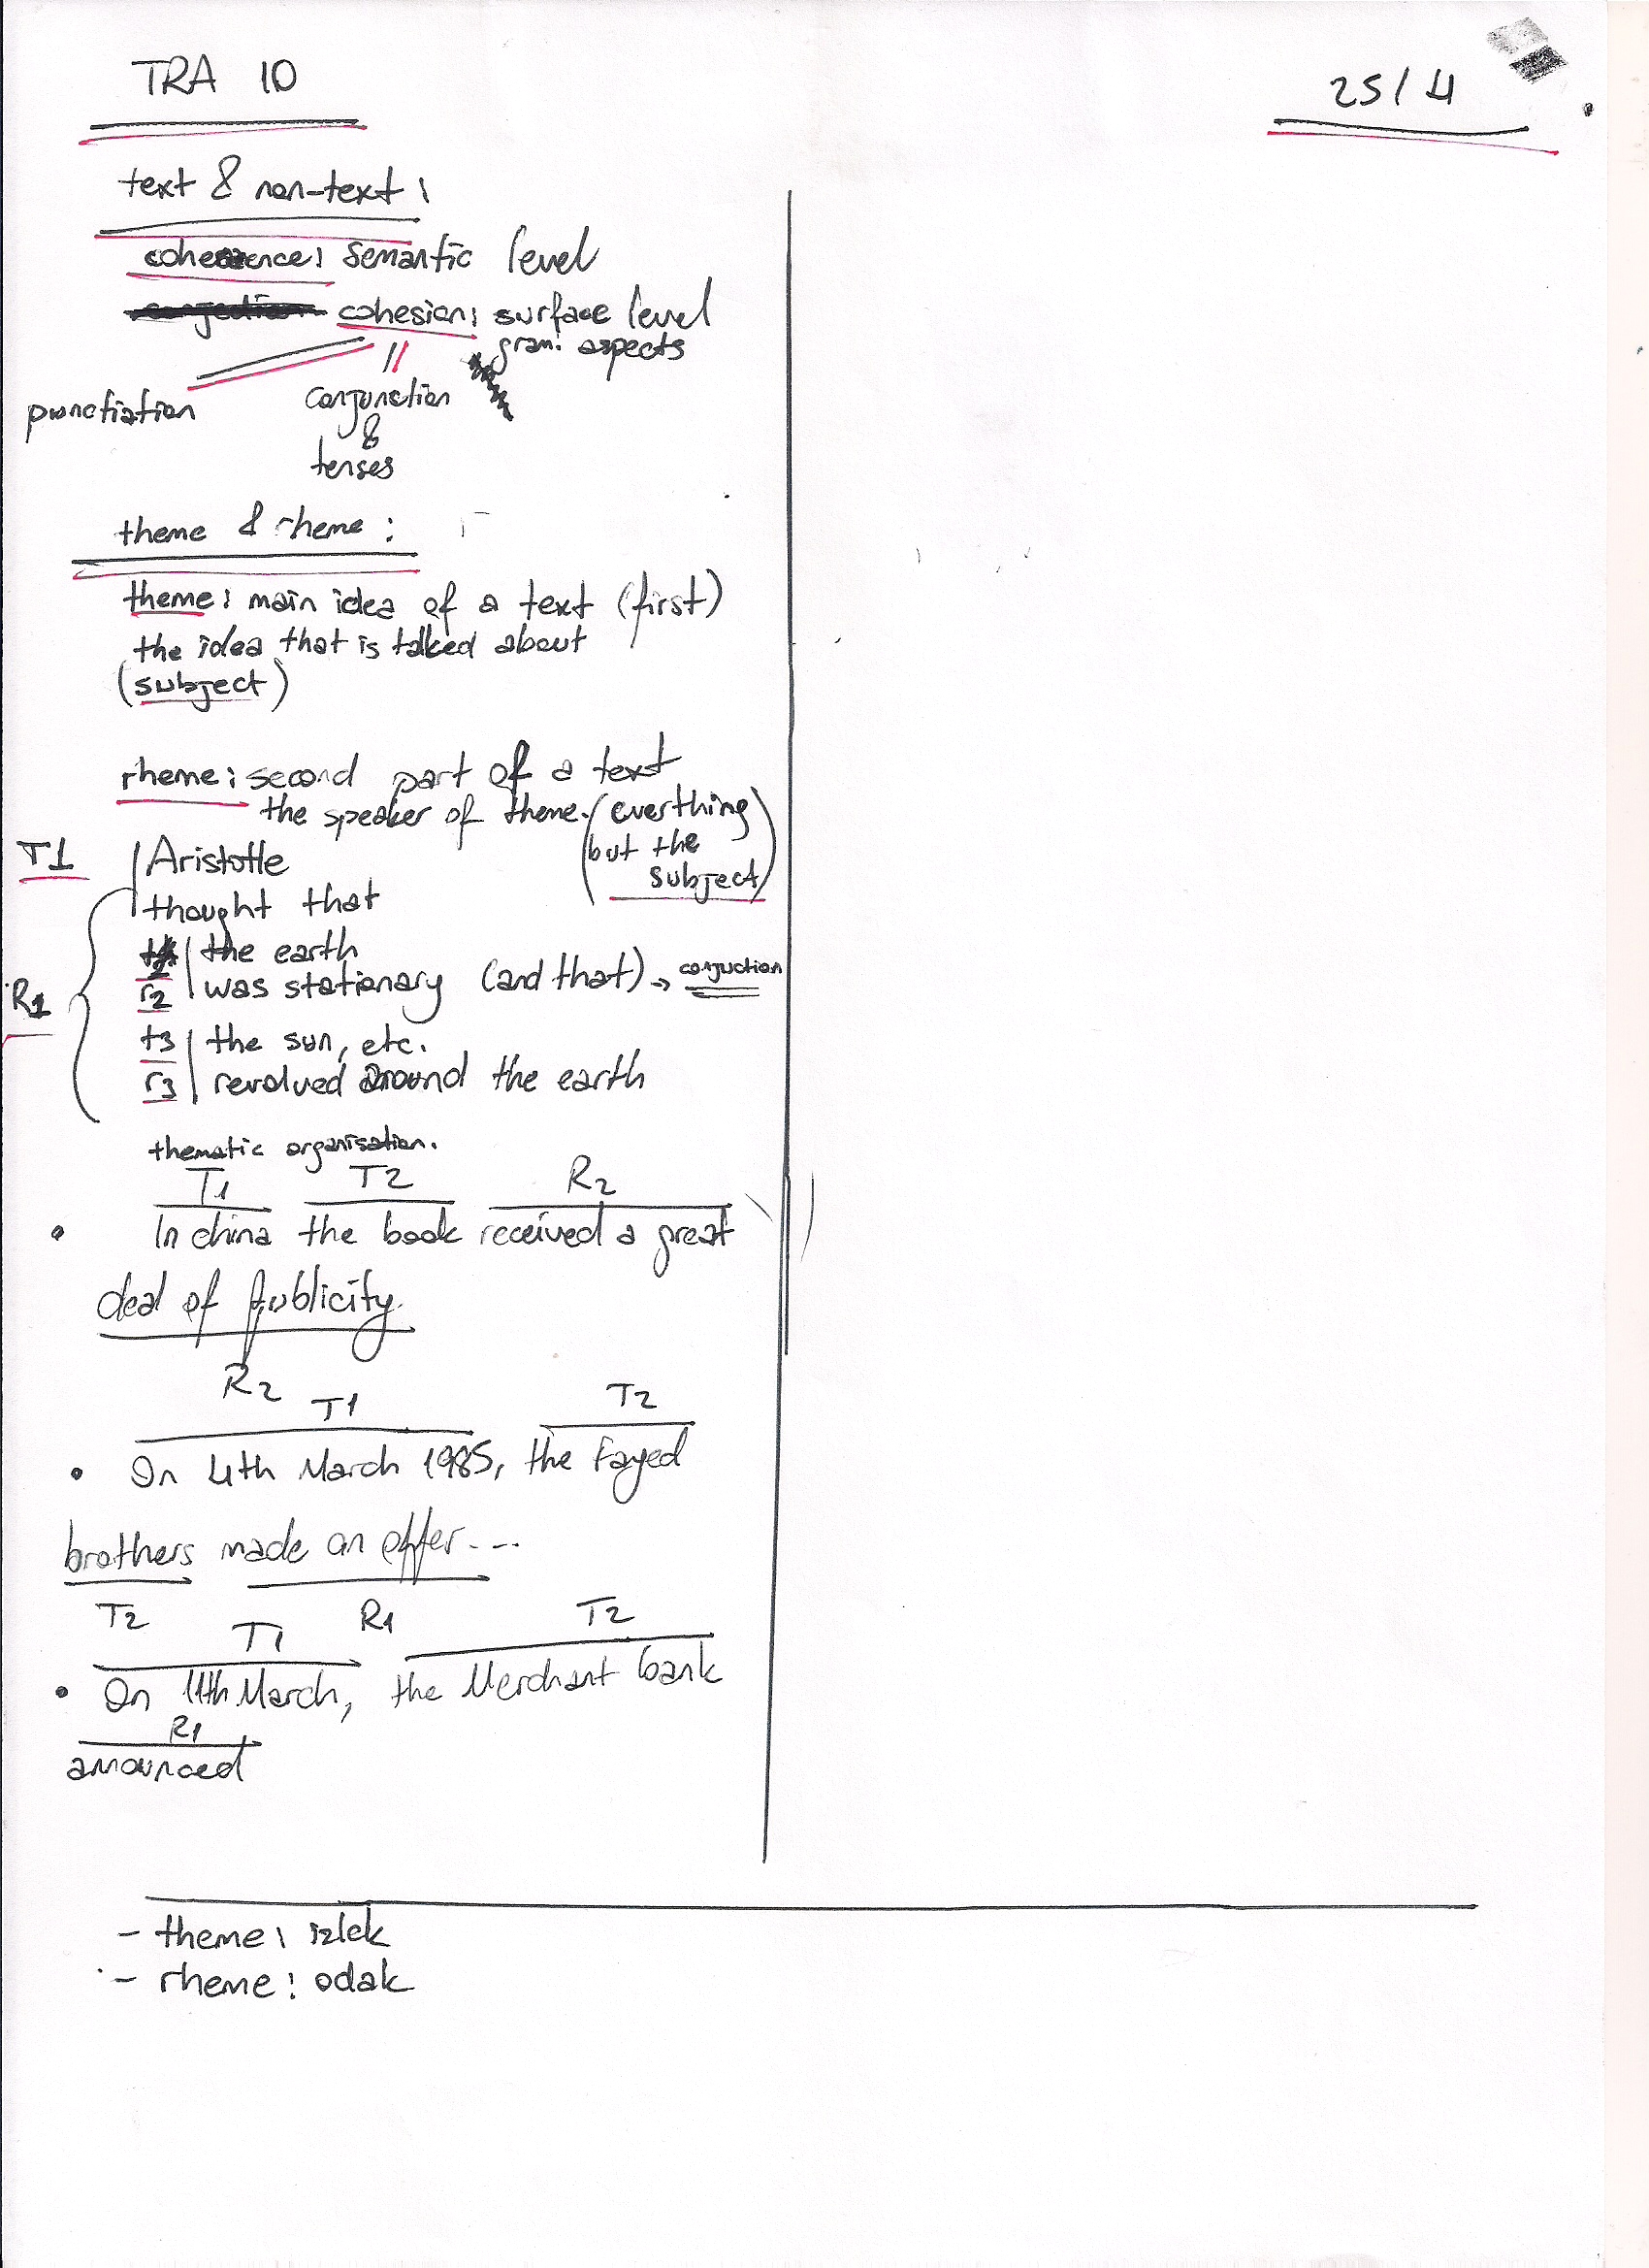 TRA 10
25/4
text & non-text:
coherence: semantic level
cohesion: surface level
gram. aspects
punctiation
conjunction
&
tenses
theme & rheme:
theme: main idea of a text (first)
the idea that is talked about
(subject)
rheme: second part of a text
the speaker of theme. (everthing
but the
subject)
T1 Aristotle
thought that
R1
t2 the earth
r2 was stationary (and that) → conjuction
t3 the sun, etc.
r3 revolved around the earth
thematic organisation.
T1 T2 R2
• In china the book received a great
deal of publicity.
R2
T1 T2
• On 4th March 1985, the Fayed
brothers made an offer...
T2 R1
T1 T2
• On 11th March, the Merchant bank
R1
anounced
- theme: izlek
- rheme: odak